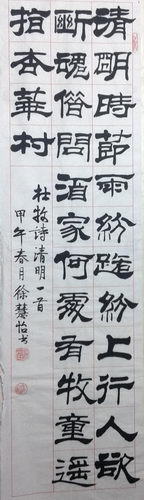 清明時節雨紛路紛上行人欲
斷魂借問酒家何處有牧童遥
指杏華村
杜牧詩清明一首
甲午春月徐慧怡书